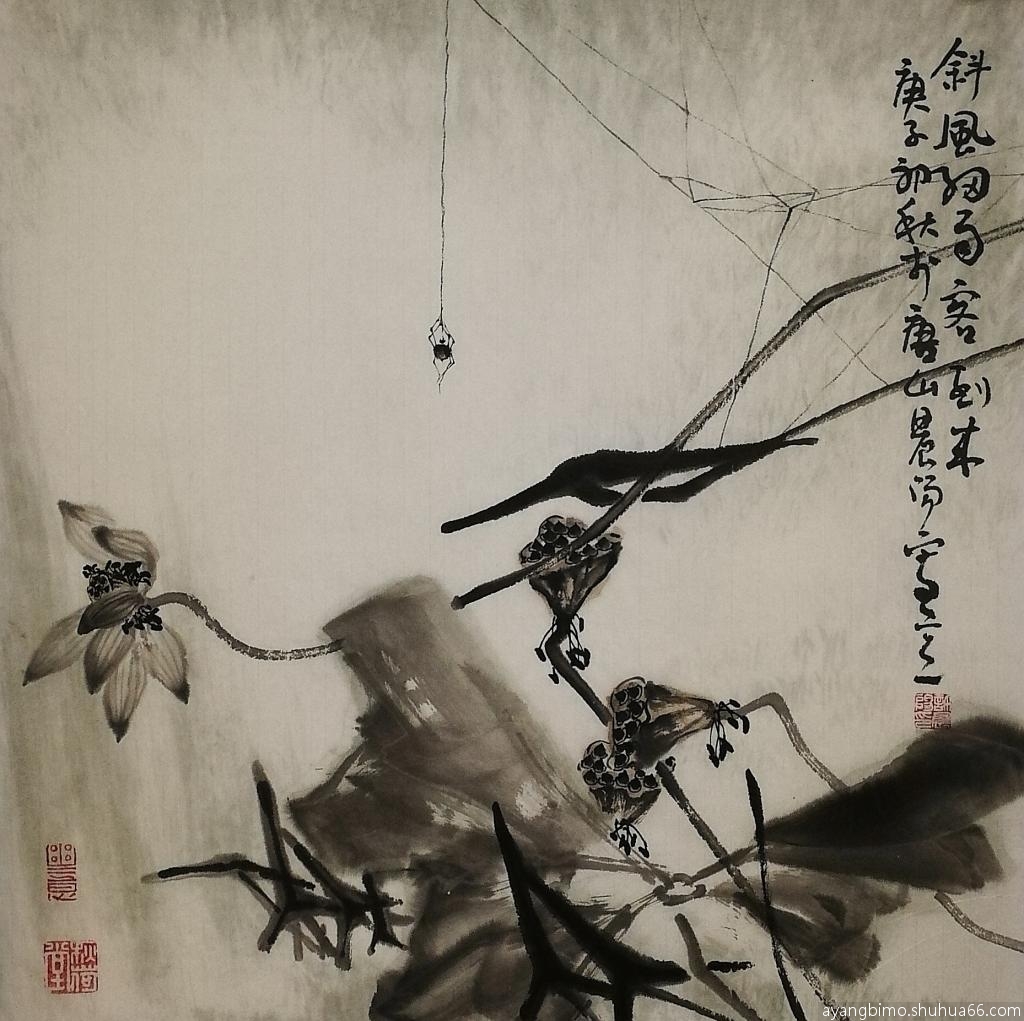 斜風細雨客到来
庚子初秋於唐山晨阳寫之
ayangbimo.shuhua66.com